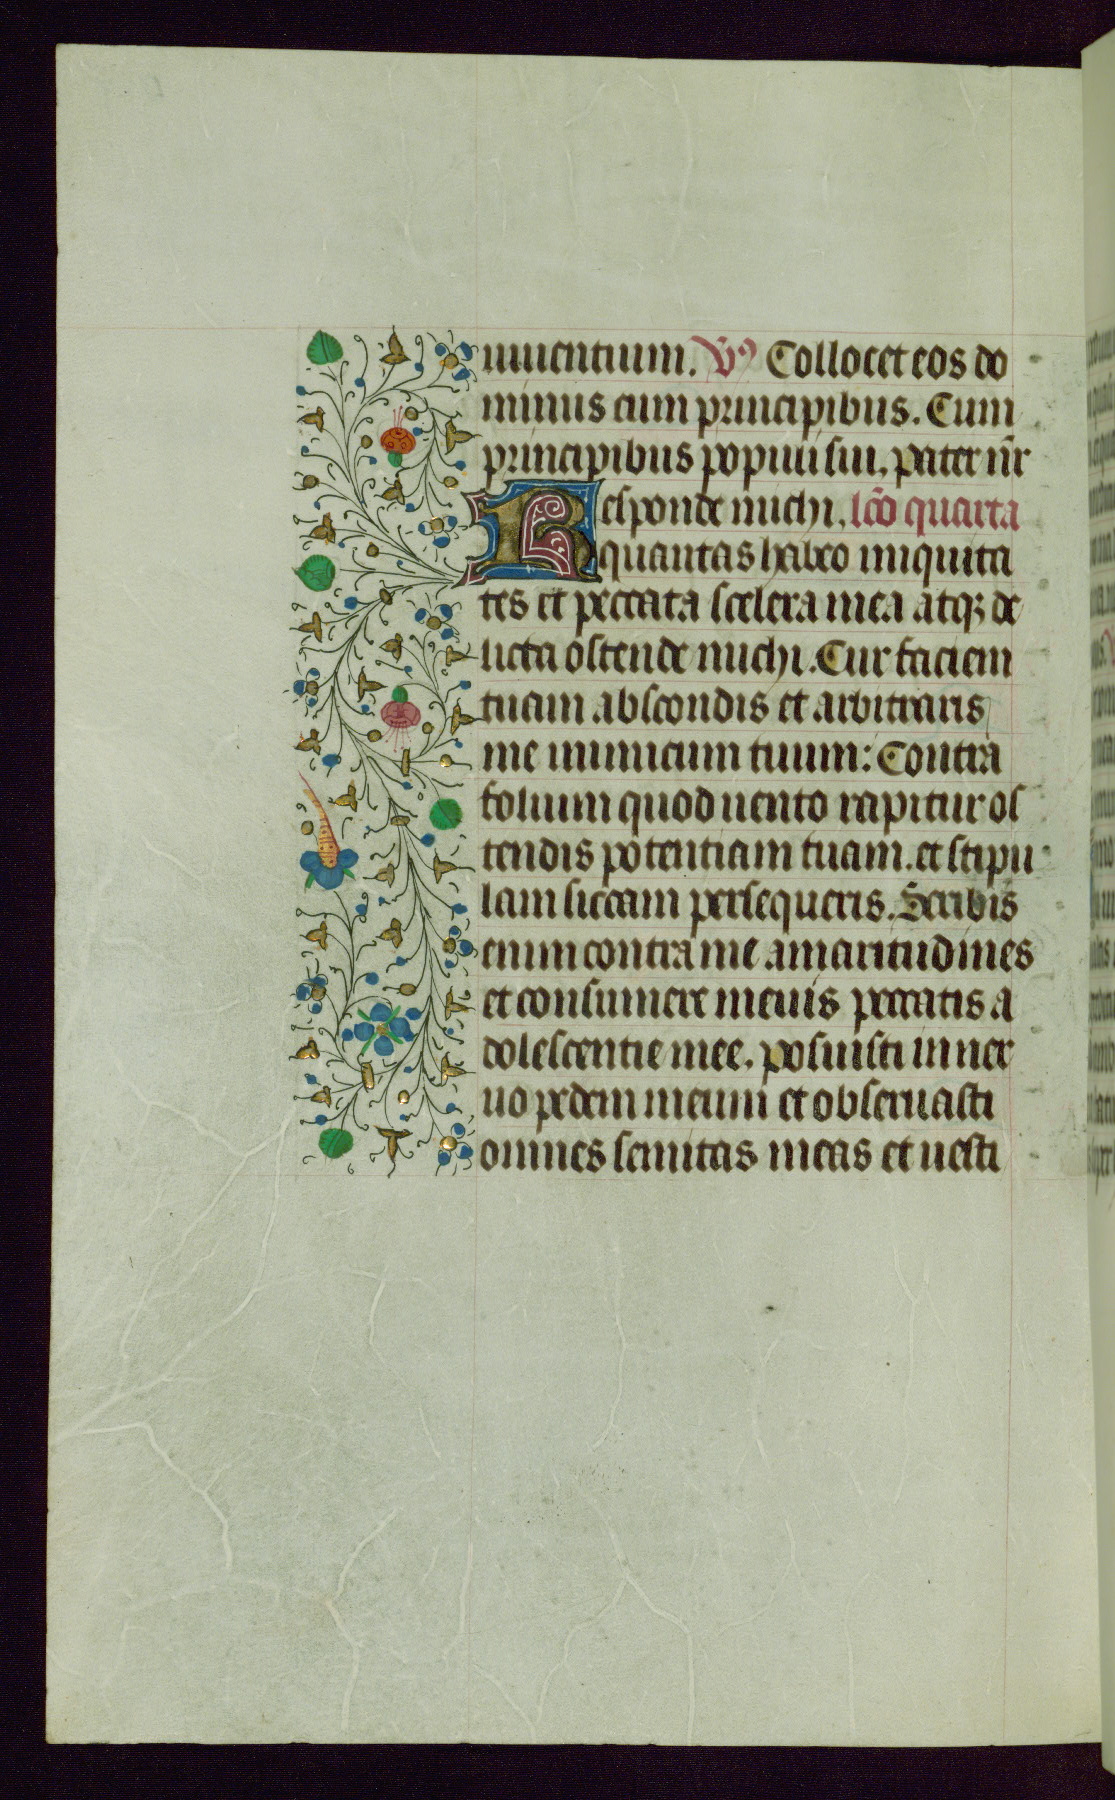 uiuentium. V Collocet eos do
minus cum principibus. Cum
principibus populi sui. pater nr̄
Responde michi. lc̄o quarta
quantas habeo iniquita
tes et peccata scelera mea atqꝫ de
licta ostende michi. Cur faciem
tuam abscondis et arbitraris
me inimicum tuum: Contra
folium quod uento rapitur os
tendis potentiam tuam. et stipu
lam siccam persequeris. Scribis
enim contra me amaritudines
et consumere me uis peccatis a
dolescentie mee. posuisti in ner
uo pedem meum et obseruasti
omnes semitas meas et uesti